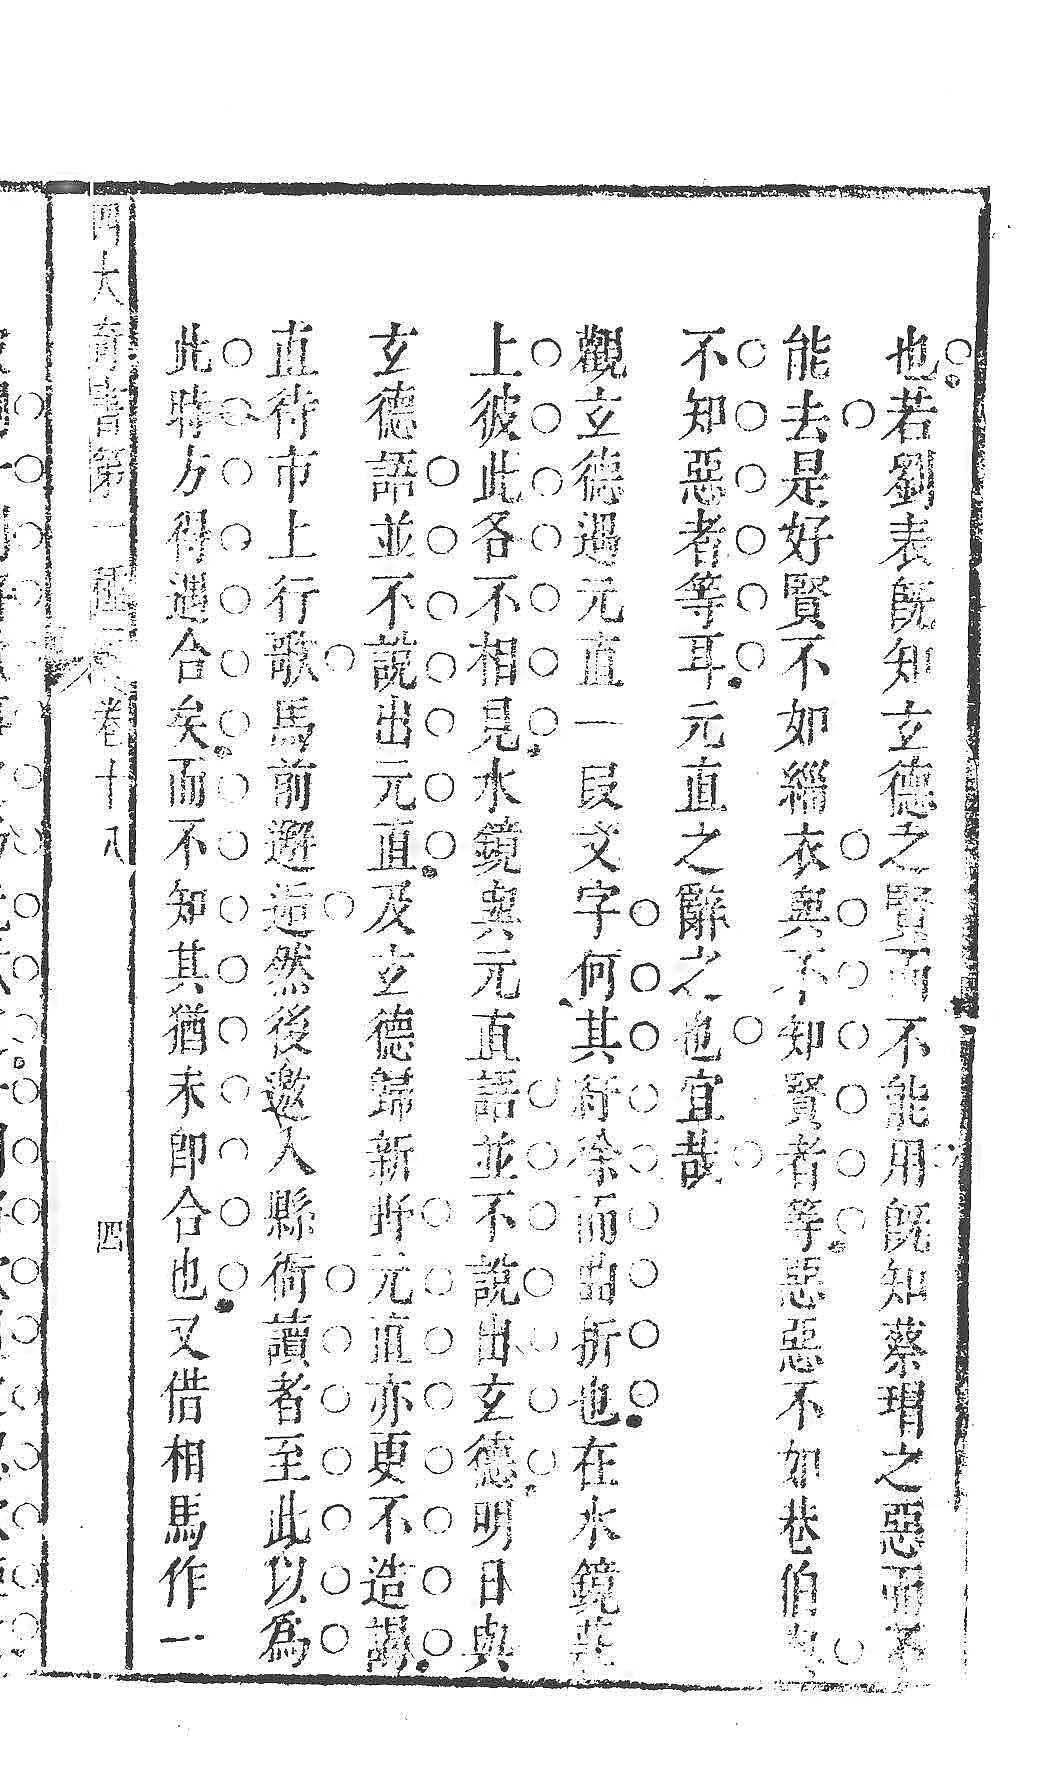 也若劉表旣知玄德之賢而不能用旣知蔡瑁之惡而不
能去是好賢不如緇衣與不知賢者等惡惡不如巷伯與
不知惡者等耳元直之辭之也宜哉
觀玄德遇元直一段文字何其紆徐而曲折也在水鏡莊
上彼此各不相見水鏡與元直語並不說出玄德明日與
玄德語並不說出元直及玄德歸新野元直亦更不造謁
直待市上行歌馬前邂逅然後邀入縣衙讀者至此以爲
此時方得遇合矣而不知其猶未卽合也又借相馬作一
四大奇書第一種 卷十八 四